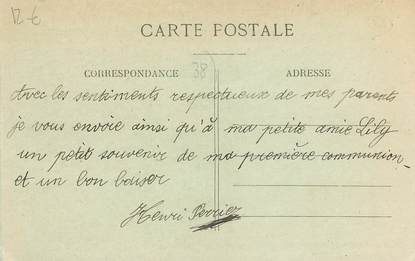 12 €
CARTE POSTALE
38
CORRESPONDANCE
ADRESSE
Avec les sentiments respectueux de mes parents
je vous envoie ainsi qu'à ma petite amie Lily
un petit souvenir de ma première communion
et un bon baiser
Henri Perrier